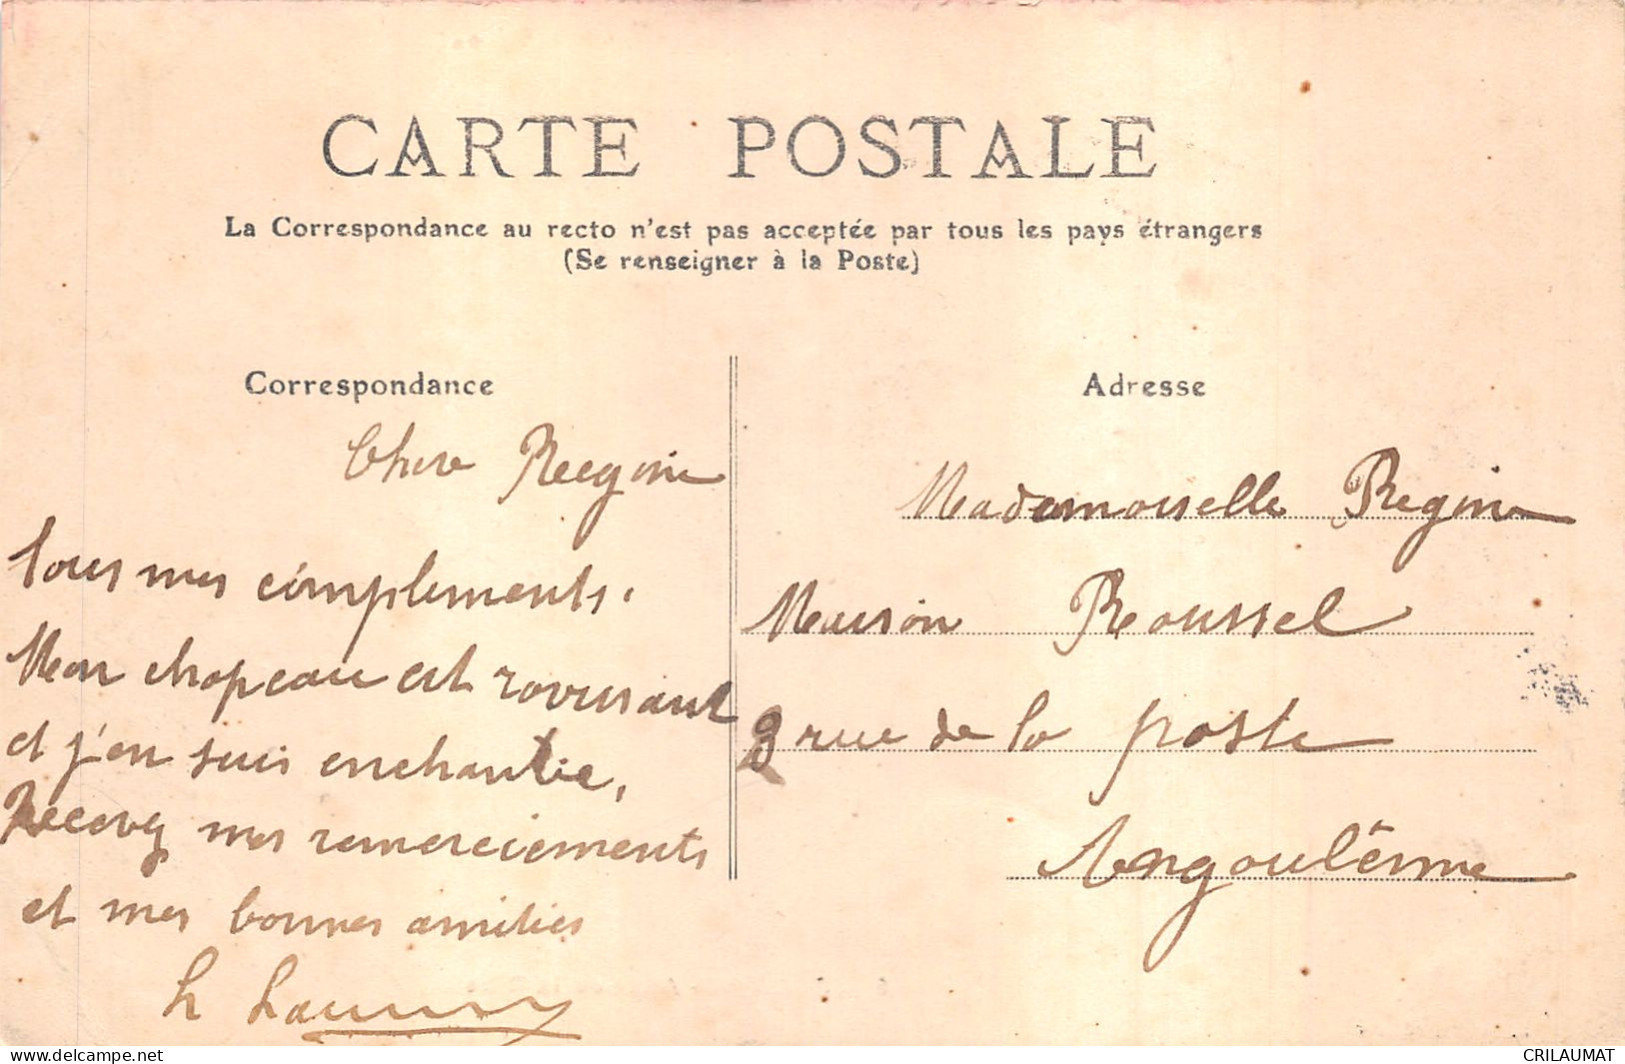 CARTE POSTALE
La Correspondance au recto n'est pas acceptée par tous les pays étrangers
(Se renseigner à la Poste)
Correspondance
Adresse
Chere Reegine
Tous mes complements.
Mon chapeau est ravissant
et j'en suis enchantée,
Recevez mes remerciements
et mes bonnes amitiés
Mademoiselle Regine
Maison Roussel
rue de la poste
Angoulême
www.delcampe.net
CRILAUMAT